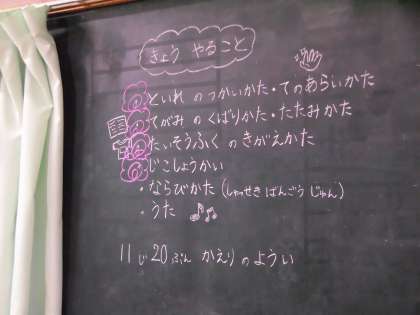 きょう やること
といれ の つかいかた・てのあらいかた
てがみ の くばりかた・たたみかた
たいそうふく の きがえかた
じこしょうかい
・ならびかた（しゅっせき ばんごう じゅん）
・うた
11じ20ぷん かえり の ようい